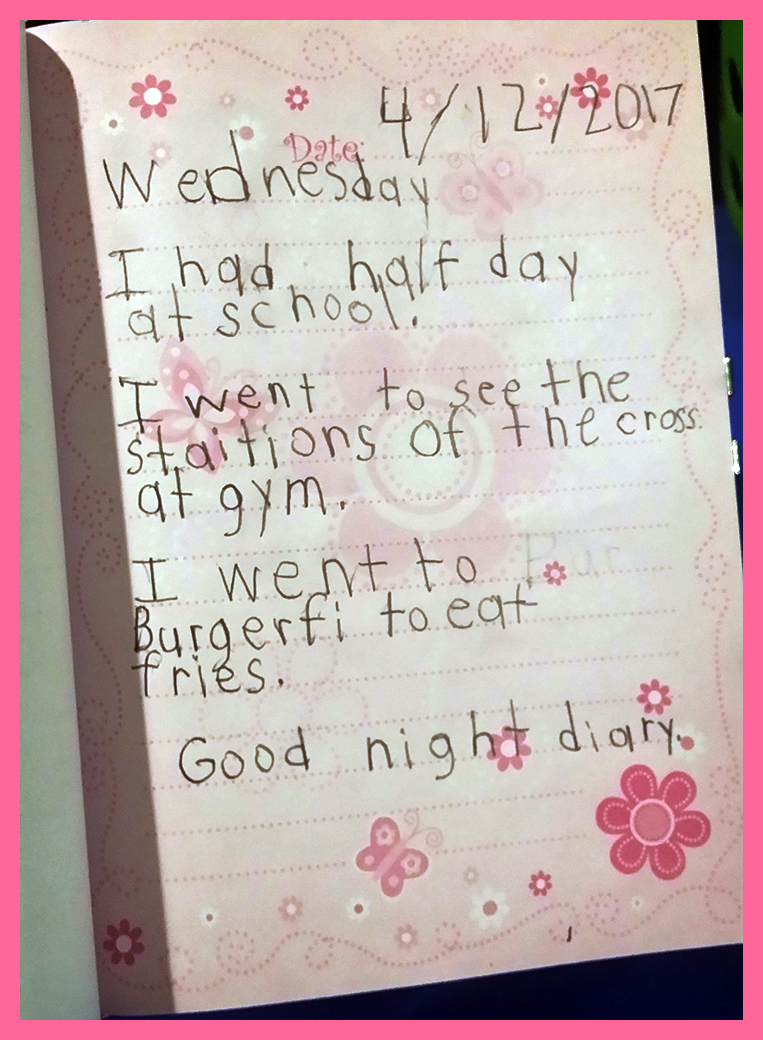 4/12/2017
Date:
Wednesday
I had half day
at school.
I went to see the
staitions of the cross.
at gym.
I went to Bur
Burgerfi to eat
fries.
Good night diary.